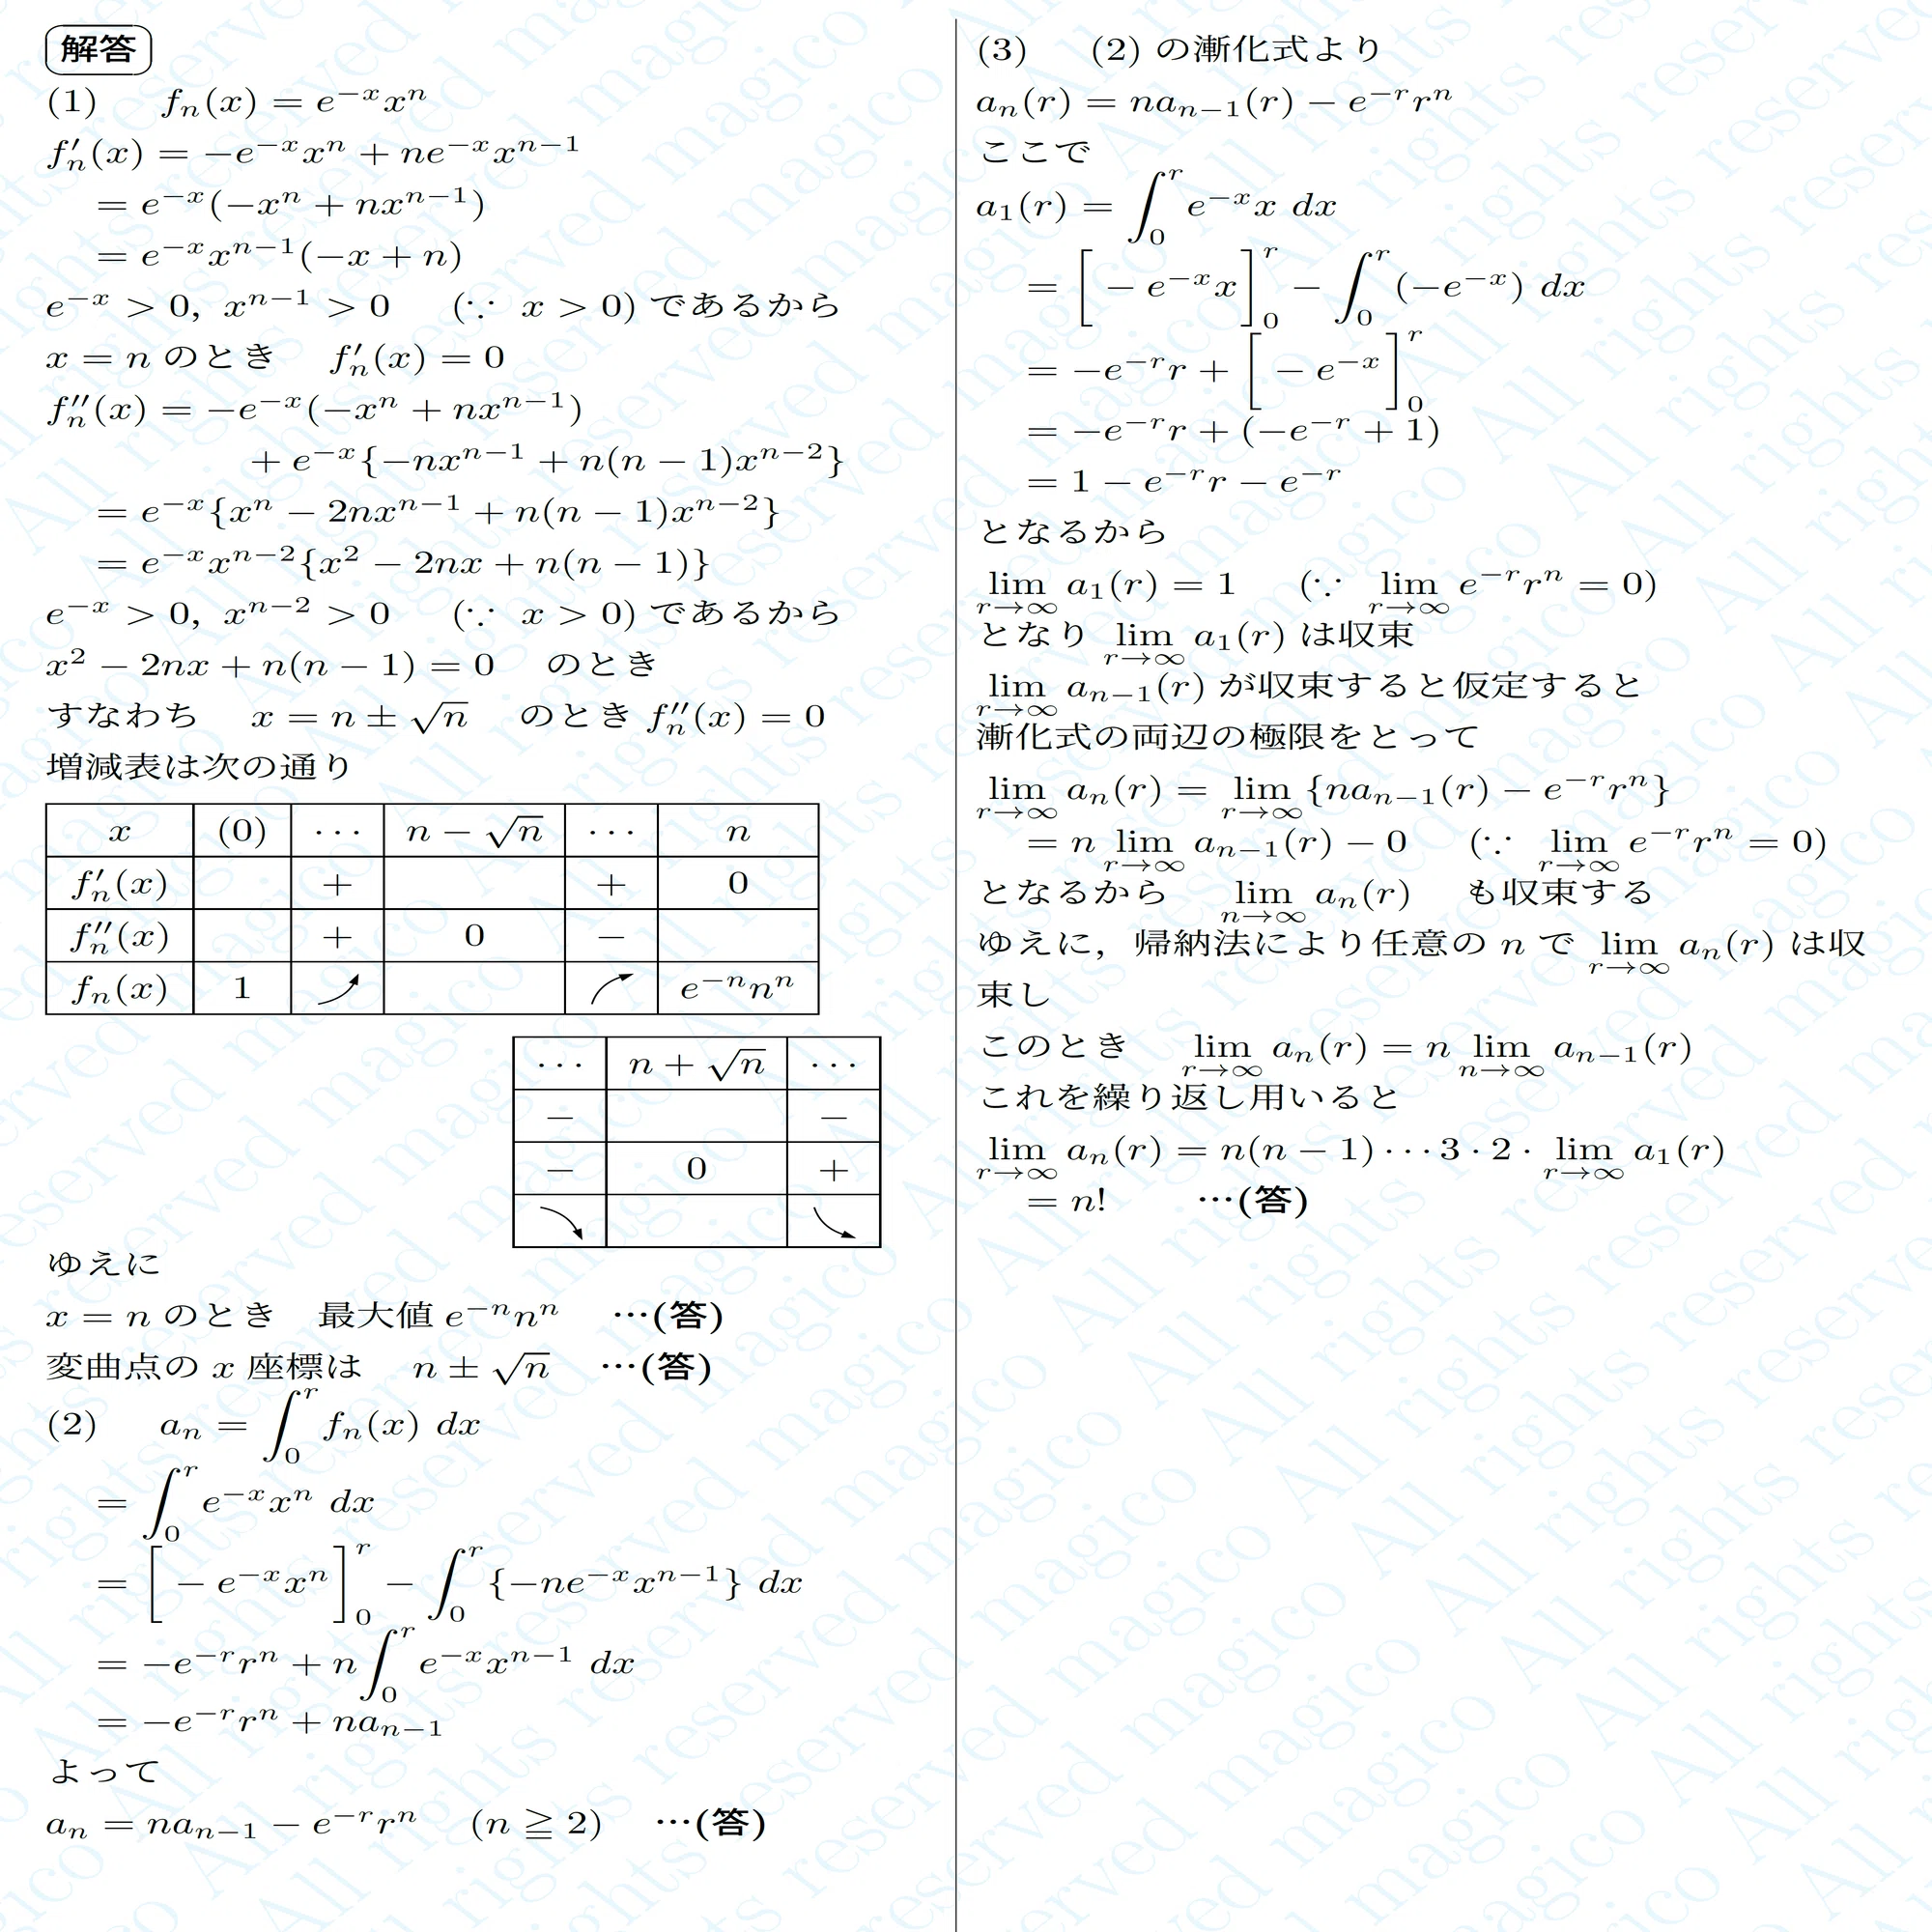 解答
(1)　 f_n(x) = e^{-x}x^n
f'_n(x) = -e^{-x}x^n + ne^{-x}x^{n-1}
= e^{-x}(-x^n + nx^{n-1})
= e^{-x}x^{n-1}(-x + n)
e^{-x} > 0, x^{n-1} > 0　 (∵ x > 0) であるから
x = n のとき　 f'_n(x) = 0
f''_n(x) = -e^{-x}(-x^n + nx^{n-1})
+ e^{-x}{-nx^{n-1} + n(n - 1)x^{n-2}}
= e^{-x}{x^n - 2nx^{n-1} + n(n - 1)x^{n-2}}
= e^{-x}x^{n-2}{x^2 - 2nx + n(n - 1)}
e^{-x} > 0, x^{n-2} > 0　 (∵ x > 0) であるから
x^2 - 2nx + n(n - 1) = 0　 のとき
すなわち　 x = n ± √n　 のとき f''_n(x) = 0
増減表は次の通り
x (0) ··· n - √n ··· n
f'_n(x) + + 0
f''_n(x) + 0 -
f_n(x) 1 e^{-n}n^n
··· n + √n ···
- -
- 0 +
ゆえに
x = n のとき　最大値 e^{-n}n^n　 …(答)
変曲点の x 座標は　 n ± √n　 …(答)
(2)　 a_n = ∫_0^r f_n(x) dx
= ∫_0^r e^{-x}x^n dx
= [-e^{-x}x^n]_0^r - ∫_0^r {-ne^{-x}x^{n-1}} dx
= -e^{-r}r^n + n∫_0^r e^{-x}x^{n-1} dx
= -e^{-r}r^n + na_{n-1}
よって
a_n = na_{n-1} - e^{-r}r^n　 (n ≧ 2)　 …(答)
(3)　 (2) の漸化式より
a_n(r) = na_{n-1}(r) - e^{-r}r^n
ここで
a_1(r) = ∫_0^r e^{-x}x dx
= [-e^{-x}x]_0^r - ∫_0^r (-e^{-x}) dx
= -e^{-r}r + [-e^{-x}]_0^r
= -e^{-r}r + (-e^{-r} + 1)
= 1 - e^{-r}r - e^{-r}
となるから
lim_{r→∞} a_1(r) = 1　 (∵ lim_{r→∞} e^{-r}r^n = 0)
となり lim_{r→∞} a_1(r) は収束
lim_{r→∞} a_{n-1}(r) が収束すると仮定すると
漸化式の両辺の極限をとって
lim_{r→∞} a_n(r) = lim_{r→∞} {na_{n-1}(r) - e^{-r}r^n}
= n lim_{r→∞} a_{n-1}(r) - 0　 (∵ lim_{r→∞} e^{-r}r^n = 0)
となるから　 lim_{n→∞} a_n(r)　 も収束する
ゆえに，帰納法により任意の n で lim_{r→∞} a_n(r) は収
束し
このとき　 lim_{r→∞} a_n(r) = n lim_{n→∞} a_{n-1}(r)
これを繰り返し用いると
lim_{r→∞} a_n(r) = n(n - 1)···3·2· lim_{r→∞} a_1(r)
= n!　 …(答)
magico All rights reserved